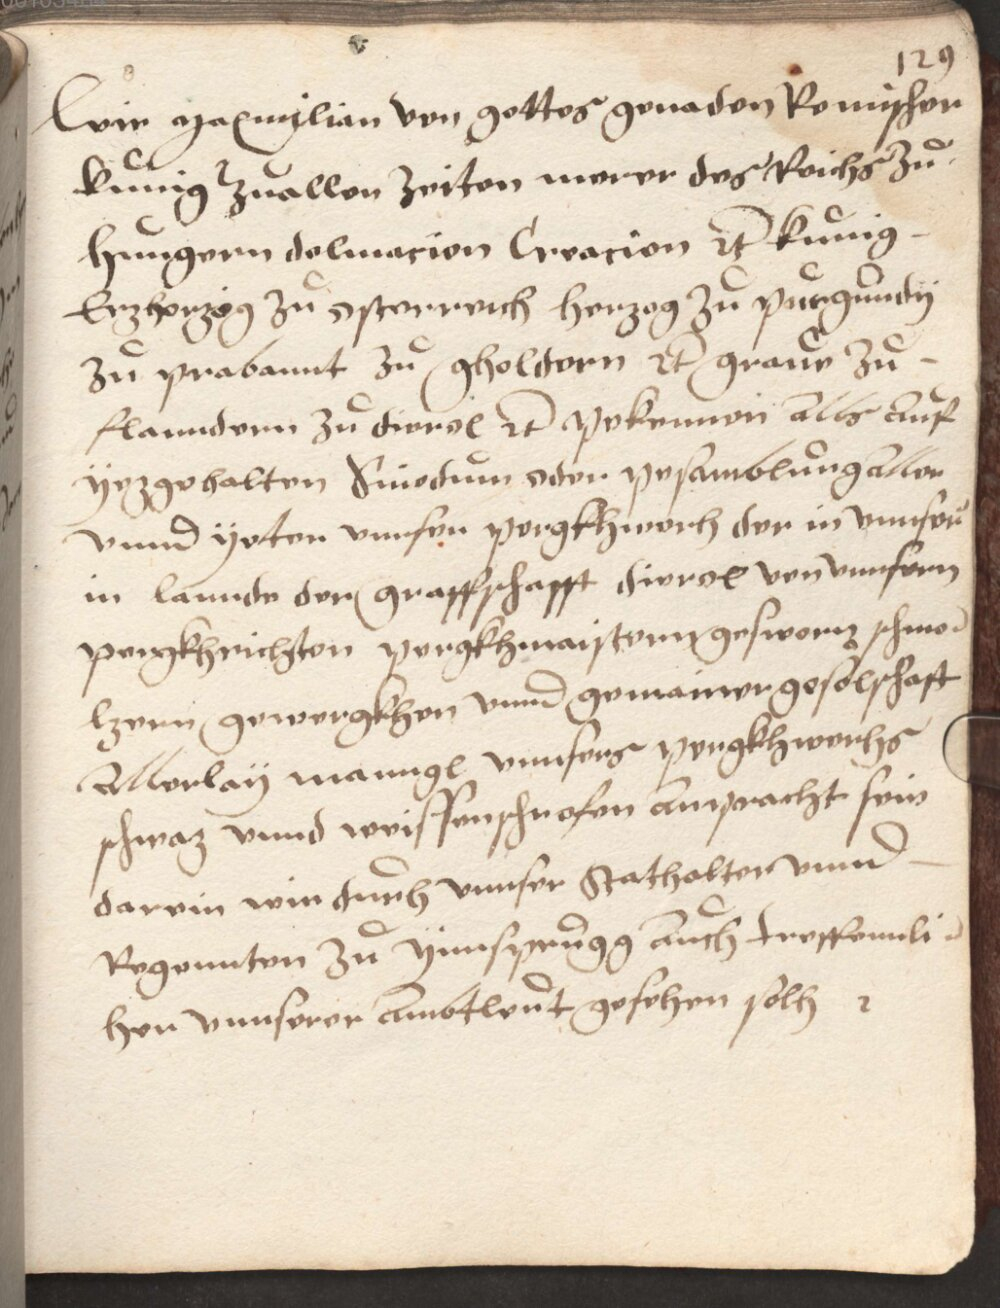 129
Wir Maxmylian von gottes genaden Romischer
kunig zuallen Zeiten merer des Reichs Zu
hungern dolmacien Croacien etc kunig
Erzherzog zu osterreich herzog zu purgundy
zu prabannt zu gheldern etc graue zu
flanndern zu tierol etc pekennen alls auf
yezgehalten Sinodum oder pesamblung aller
vnnd yeter vnnser pergkhwerch der in vnnser
in lannde der graffschafft tierol von vnnsern
pergkhrichter pergkhmaistern gesworn schme
lzern gewergkhen vnnd gemainer geselschaft
allerlay manngl vnnsers pergkhwerchs
schwaz vnnd weissenschrofen anpracht sein
darein wir durch vnnser Stathalter vnnd
Regennten zu ynnsprugg auch treffennli
hen vnnserer ambtleut gesehen solh